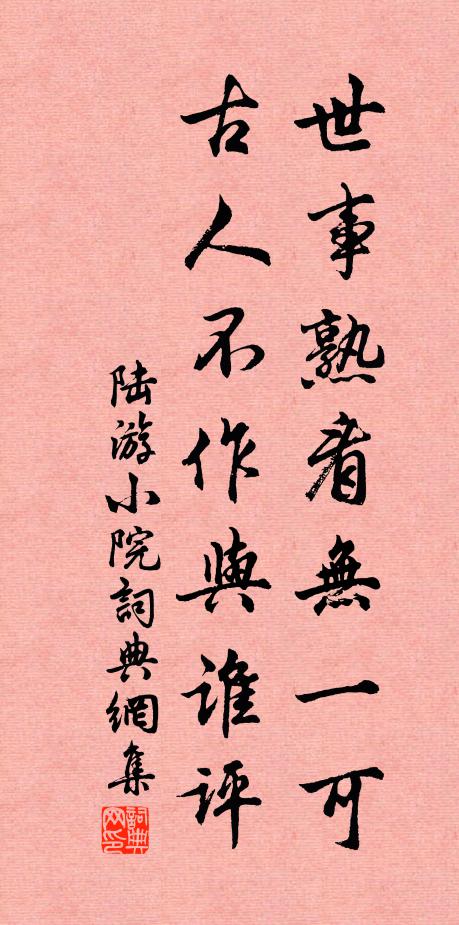 世事熟看無一可
古人不作與誰評
陆游小院詞典網集
詞典网印